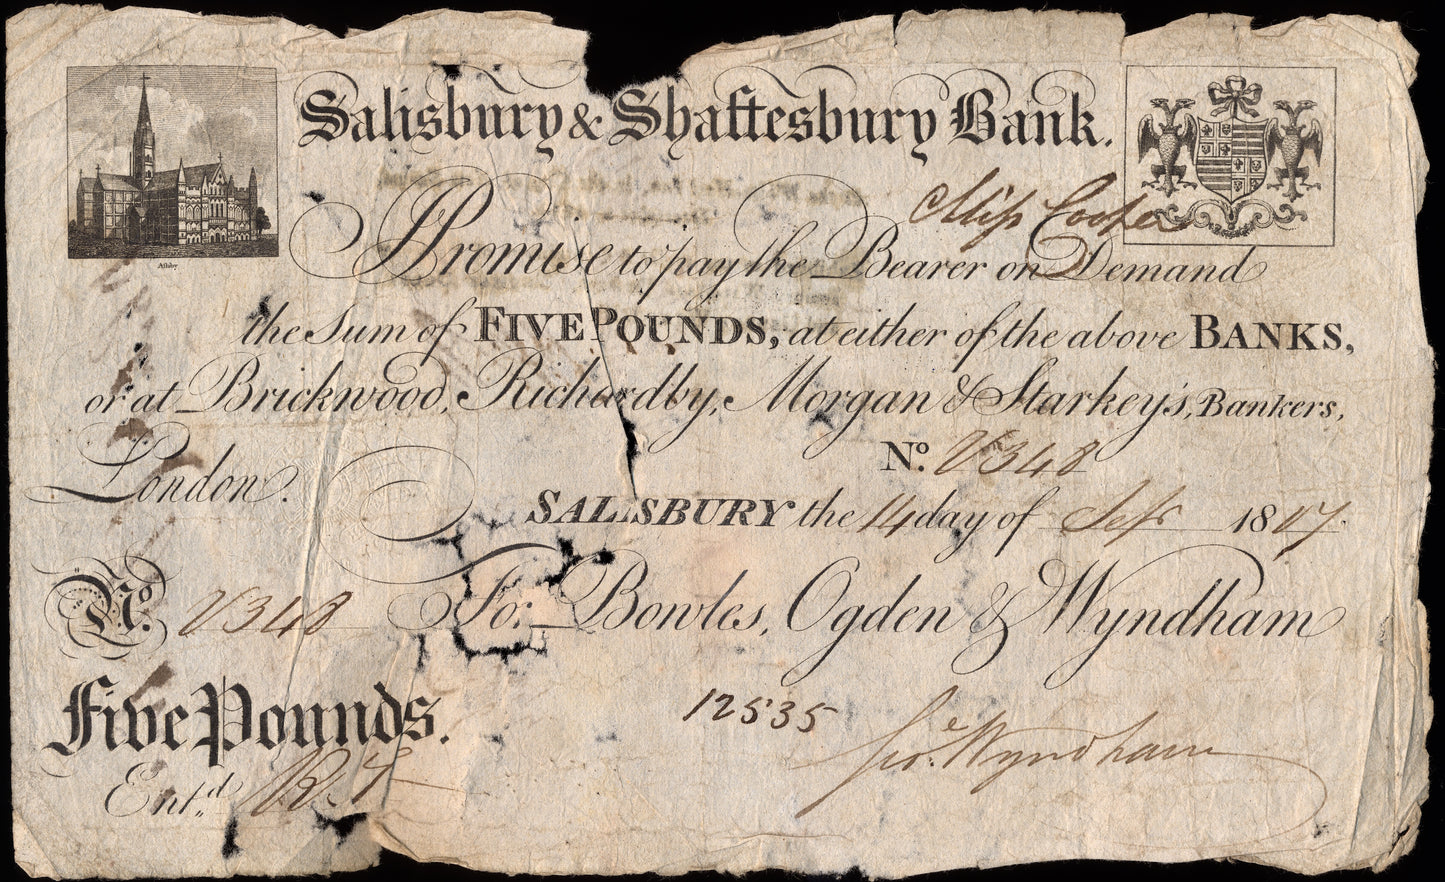 Salisbury & Shaftesbury Bank.
Miss Cooper
I Promise to pay the Bearer on Demand
the Sum of FIVE POUNDS, at either of the above BANKS,
or at Brickwood, Richardby, Morgan & Starkey's, Bankers,
London.
No. V348
SALISBURY the 14 day of Sepr 1807
No. V348
For Bowles, Ogden & Wyndham
Five Pounds.
12535
Geo. Wyndham
Entd.